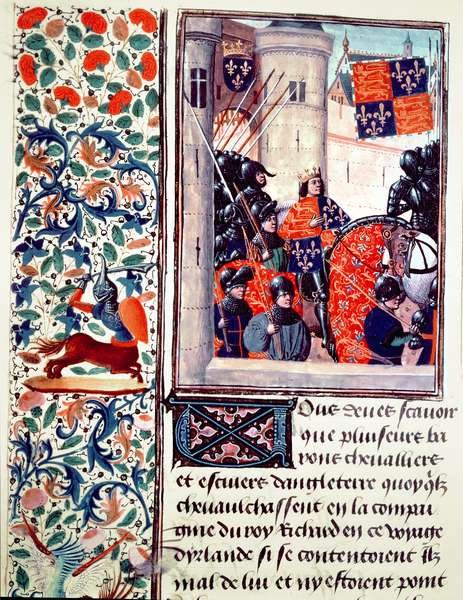 Vous deuez scauoir
que pluiseurs ba
rons cheualliers
et escuiers dangleterre quoy quilz
cheuaulchassent en la compai
gnie du roy Richard en ce voyage
dyrlande si se contentoient ilz
mal de lui et ny estoient point